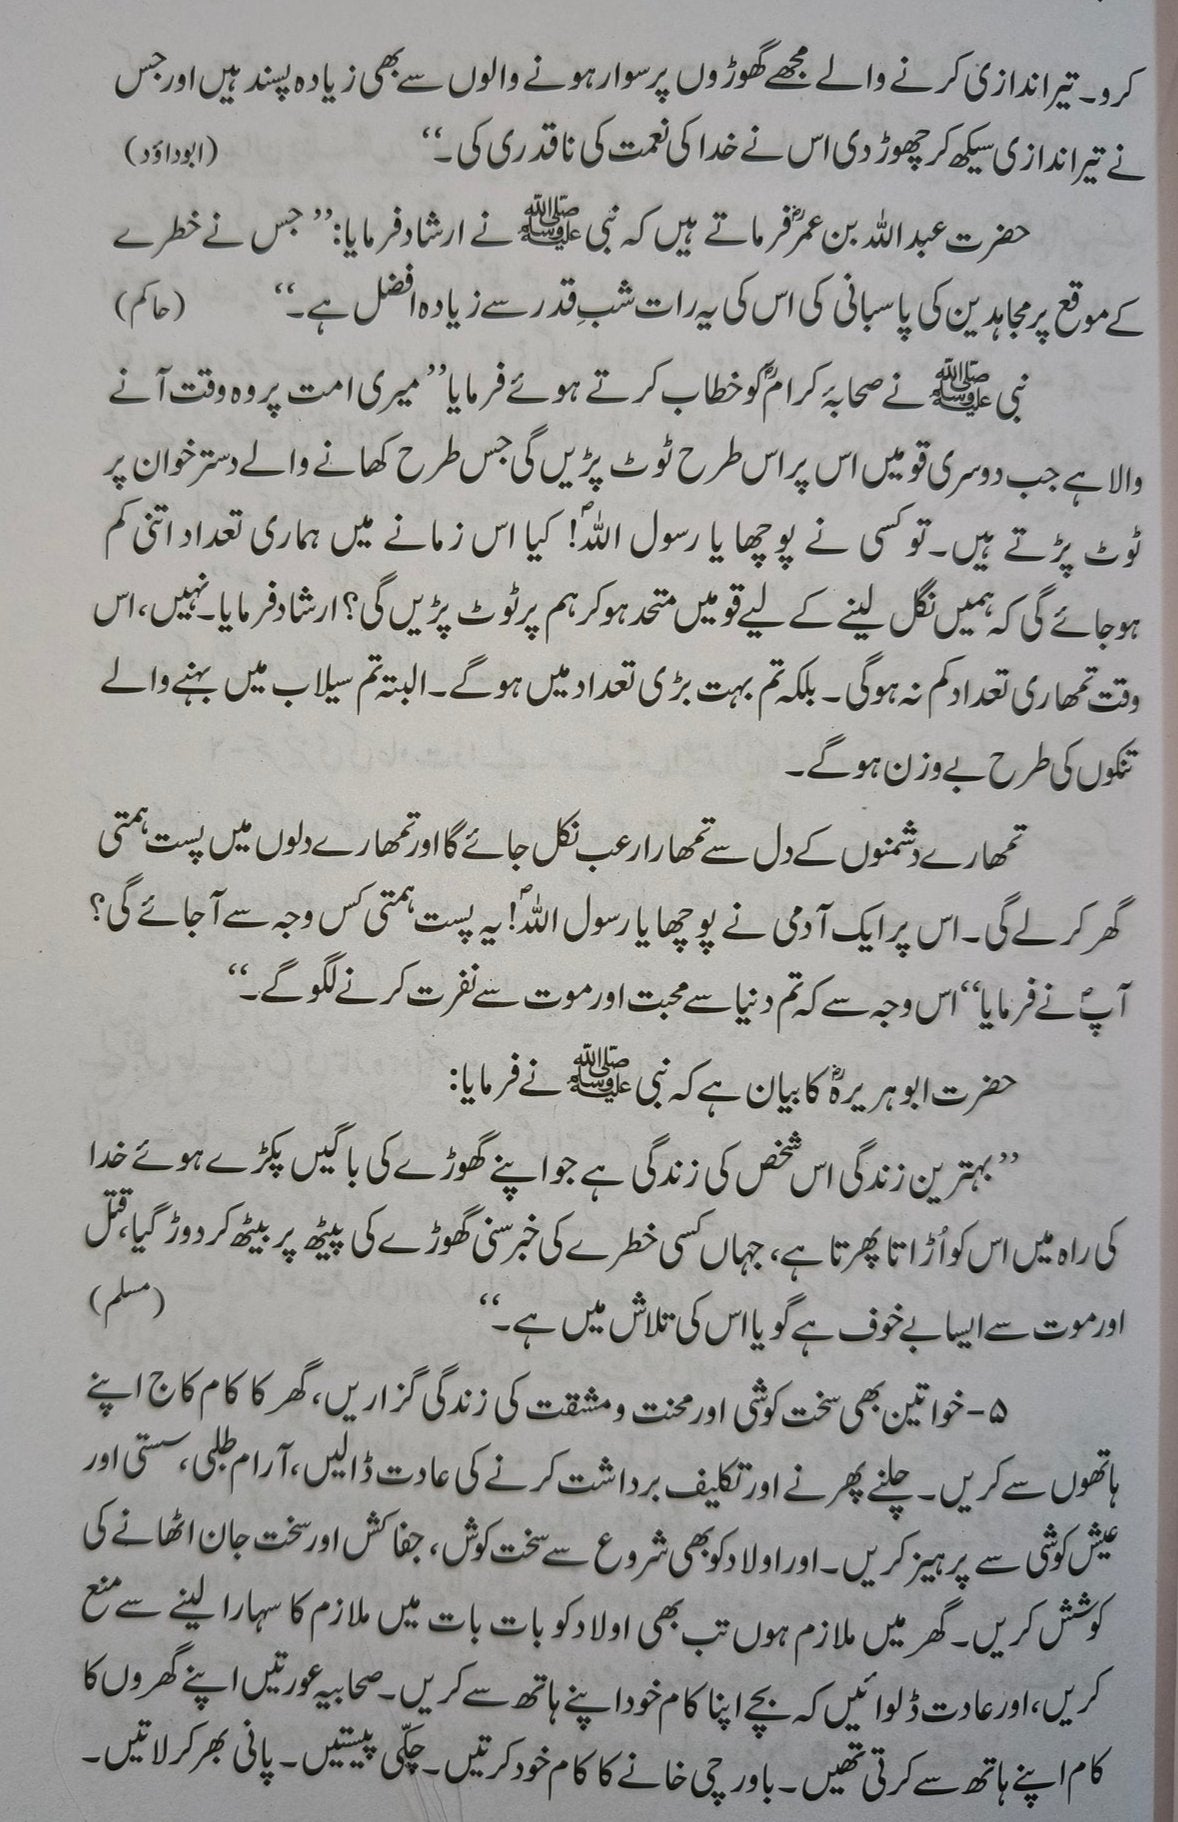 کرو۔ تیراندازی کرنے والے مجھے گھوڑوں پر سوار ہونے والوں سے بھی زیادہ پسند ہیں اور جس
نے تیراندازی سیکھ کر چھوڑ دی اس نے خدا کی نعمت کی ناقدری کی۔‘‘ (ابوداؤد)
حضرت عبداللہ بن عمرؓ فرماتے ہیں کہ نبی ﷺ نے ارشاد فرمایا: ’’جس نے خطرے
کے موقع پر مجاہدین کی پاسبانی کی اس کی یہ رات شبِ قدر سے زیادہ افضل ہے۔‘‘ (حاکم)
نبی ﷺ نے صحابۂ کرامؓ کو خطاب کرتے ہوئے فرمایا ’’میری امت پر وہ وقت آنے
والا ہے جب دوسری قومیں اس پر اس طرح ٹوٹ پڑیں گی جس طرح کھانے والے دسترخوان پر
ٹوٹ پڑتے ہیں۔ تو کسی نے پوچھا یا رسول اللہؐ! کیا اس زمانے میں ہماری تعداد اتنی کم
ہوجائے گی کہ ہمیں نگل لینے کے لیے قومیں متحد ہوکر ہم پر ٹوٹ پڑیں گی؟ ارشاد فرمایا۔ نہیں، اس
وقت تمھاری تعداد کم نہ ہوگی۔ بلکہ تم بہت بڑی تعداد میں ہوگے۔ البتہ تم سیلاب میں بہنے والے
تنکوں کی طرح بے وزن ہوگے۔
تمھارے دشمنوں کے دل سے تمھارا رعب نکل جائے گا اور تمھارے دلوں میں پست ہمتی
گھر کرلے گی۔ اس پر ایک آدمی نے پوچھا یا رسول اللہؐ! یہ پست ہمتی کس وجہ سے آجائے گی؟
آپؐ نے فرمایا‘‘ اس وجہ سے کہ تم دنیا سے محبت اور موت سے نفرت کرنے لگو گے۔‘‘
حضرت ابوہریرہؓ کا بیان ہے کہ نبی ﷺ نے فرمایا:
’’بہترین زندگی اس شخص کی زندگی ہے جو اپنے گھوڑے کی باگیں پکڑے ہوئے خدا
کی راہ میں اس کو اُڑاتا پھرتا ہے، جہاں کسی خطرے کی خبر سنی گھوڑے کی پیٹھ پر بیٹھ کر دوڑ گیا، قتل
اور موت سے ایسا بے خوف ہے گویا اس کی تلاش میں ہے۔‘‘ (مسلم)
۵- خواتین بھی سخت کوشی اور محنت و مشقت کی زندگی گزاریں، گھر کا کام کاج اپنے
ہاتھوں سے کریں۔ چلنے پھرنے اور تکلیف برداشت کرنے کی عادت ڈالیں، آرام طلبی، سستی اور
عیش کوشی سے پرہیز کریں۔ اور اولاد کو بھی شروع سے سخت کوش، جفاکش اور سخت جان اٹھانے کی
کوشش کریں۔ گھر میں ملازم ہوں تب بھی اولاد کو بات بات میں ملازم کا سہارا لینے سے منع
کریں، اور عادت ڈلوائیں کہ بچے اپنا کام خود اپنے ہاتھ سے کریں۔ صحابیہ عورتیں اپنے گھروں کا
کام اپنے ہاتھ سے کرتی تھیں۔ باورچی خانے کا کام خود کرتیں۔ چکّی پیستیں۔ پانی بھر کر لاتیں۔